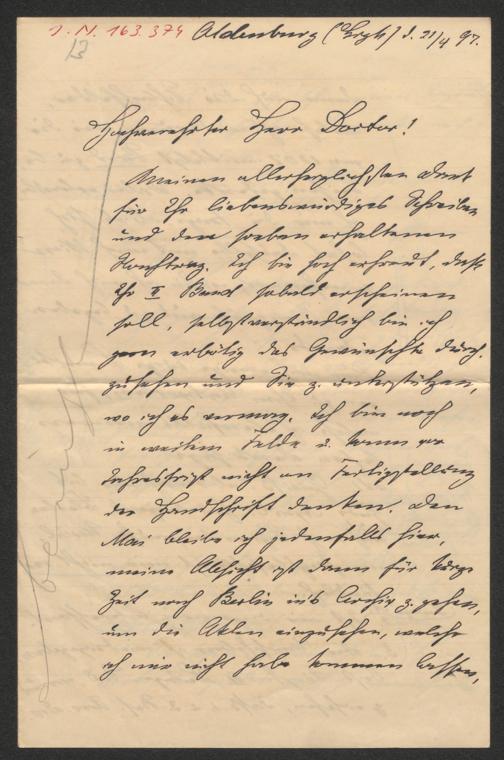 J. N. 163.374 Oldenburg (Grgh) d. 21/4 97.
13
Hochverehrter Herr Doctor!
Meinen allerherzlichsten Dank
für Ihr liebenswürdiges Schreiben
und den soeben erhaltenen
Ich bin hoch erfreut, daß
Ihr II Band sobald erscheinen
soll, selbstverständlich bin ich
gern erbötig das Gewünschte durch-
zusehen und Sie z. unterstützen,
wo ich es vermag. Ich bin noch
in weitem Felde u. kann vor
Jahresfrist nicht an Fertigstellung
der Handschrift denken. Den
Mai bleibe ich jedenfalls hier,
meine Absicht ist dann für kurze
Zeit nach Berlin ins Archiv z. gehen,
um die Akten einzusehen, welche
ich mir nicht habe kommen lassen,
benützt